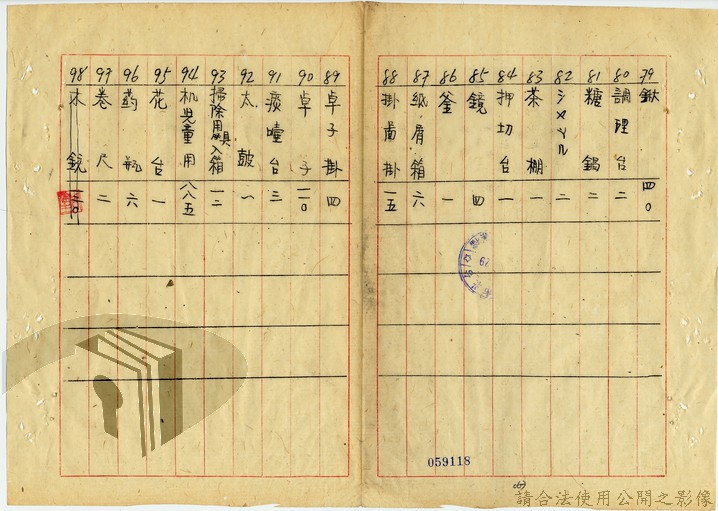 79 鍬 四〇
80 調理台 二
81 糖鍋 二
82 シメナハ 二
83 茶棚 一
84 押切台 一
85 鏡 四
86 釜 一
87 紙屑箱 六
88 掛歯掛 一五
89 卓子掛 四
90 卓子 一一〇
91 痰唾台 三
92 太鼓 一
93 掃除用具入箱 一二
94 机児童用 八八五
95 花台 一
96 药瓶 六
97 巻尺 二
98 木銃
059118
請合法使用公開之影像